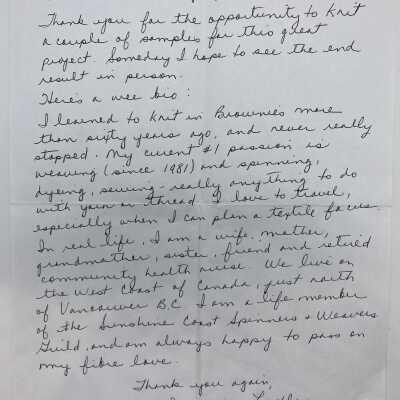 Thank you for the opportunity to knit
a couple of samples for this great
project. Someday I hope to see the end
result in person.
Here's a wee bio:
I learned to knit in Brownies more
than sixty years ago, and never really
stopped. My current #1 passion is
weaving (since 1981) and spinning,
dyeing, sewing - really anything to do
with yarn or thread. I love to travel,
especially when I can plan a textile focus.
In real life, I am a wife, mother,
grandmother, sister, friend and retired
community health nurse. We live on
the West Coast of Canada, just north
of Vancouver B.C. I am a life member
of the Sunshine Coast Spinners + Weavers
Guild, and am always happy to pass on
my fibre love.
Thank you again,